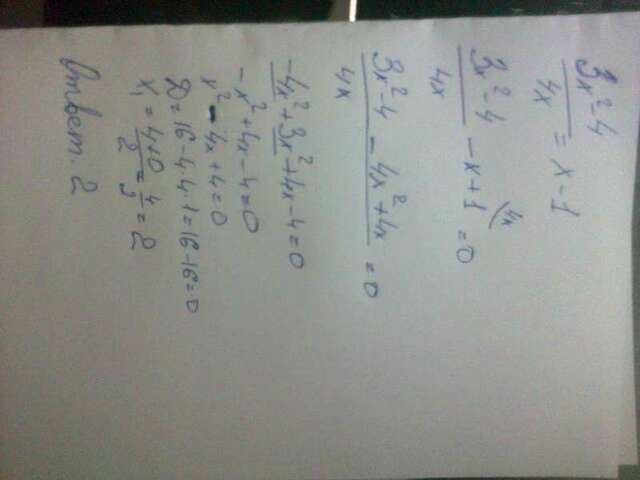 3x²-4 / 4x = x-1
3x²-4 / 4x - x+1 (4x = 0
3x²-4 - 4x²+4x / 4x = 0
-4x²+3x²+4x-4=0
-x²+4x-4=0
x²-4x+4=0
D=16-4·4·1=16-16=0
x₁ = 4+0 / 2 = 4 / 2 = 2
Ответ. 2